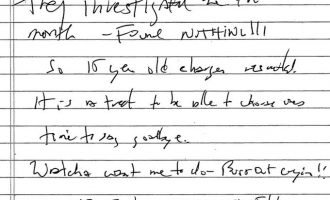 They investigated me for
month - Found NOTHING!!!
So 15 year old charges resulted.
It is a treat to be able to choose ones
time to say goodbye.
Watcha want me to do - Burst out crying!!